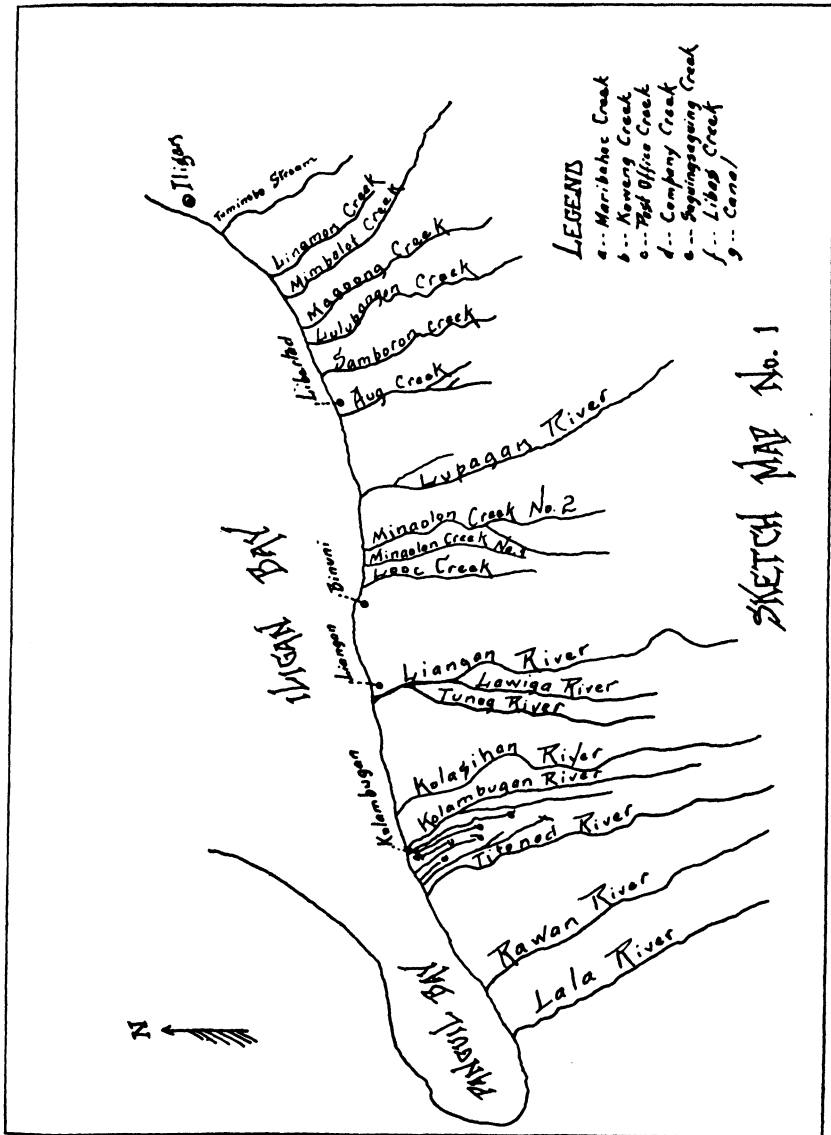 Iligan
Tuminobo Stream
Linamon Creek
Mimbalot Creek
Magoong Creek
Lulubangen Creek
Samboron Creek
Libertad
Aug Creek
Lupagan River
Minaolon Creek No. 2
Minaolon Creek No. 1
Looc Creek
Binuni
ILIGAN BAY
Liangan
Liangan River
Lawiga River
Tunog River
Kolambugan
Kolasihan River
Kolambugan River
Titonod River
Rawan River
Lala River
PANGUIL BAY
N
LEGEND
a -- Maribahoc Creek
b -- Kaweng Creek
c -- Post Office Creek
d -- Company Creek
e -- Saguingsaguing Creek
f -- Libas Creek
g -- Canal
SKETCH MAP No. 1